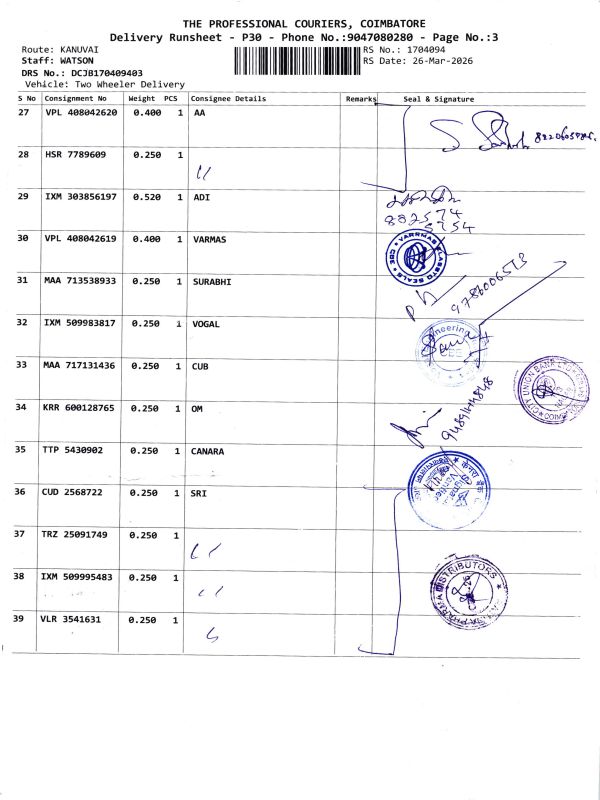 THE PROFESSIONAL COURIERS, COIMBATORE
Delivery Runsheet - P30 - Phone No.:9047080280 - Page No.:3
Route: KANUVAI RS No.: 1704094
Staff: WATSON RS Date: 26-Mar-2026
DRS No.: DCJB170409403
Vehicle: Two Wheeler Delivery
S No Consignment No Weight PCS Consignee Details Remarks Seal & Signature
27 VPL 408042620 0.400 1 AA
28 HSR 7789609 0.250 1 "
29 IXM 303856197 0.520 1 ADI
882574
5754
30 VPL 408042619 0.400 1 VARMAS
31 MAA 713538933 0.250 1 SURABHI
9786006513
32 IXM 509983817 0.250 1 VOGAL
33 MAA 717131436 0.250 1 CUB
CITY UNION BANK LTD
34 KRR 600128765 0.250 1 OM
35 TTP 5430902 0.250 1 CANARA
36 CUD 2568722 0.250 1 SRI
37 TRZ 25091749 0.250 1 "
38 IXM 509995483 0.250 1 "
DISTRIBUTORS
39 VLR 3541631 0.250 1